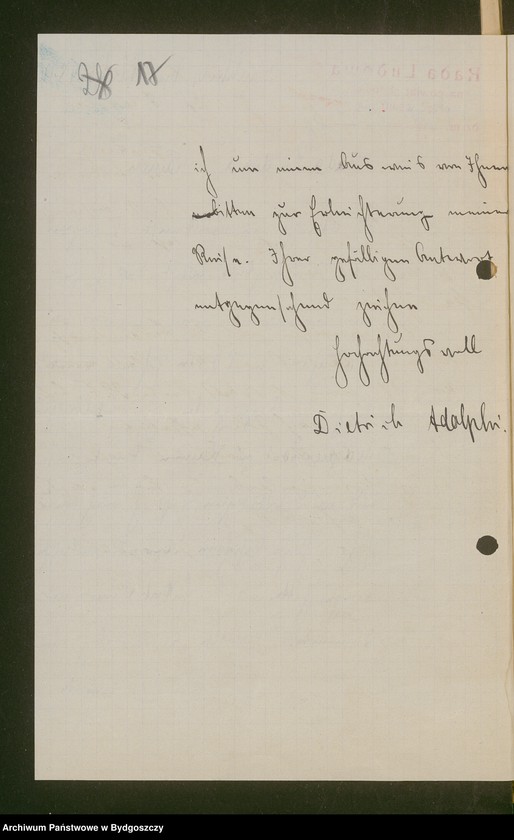 28 18
ich um einen Ausweis von Ihnen
bitten zur Erleichterung meiner
Reise. Ihrer gefälligen Antwort
entgegensehend zeichne
Hochachtungsvoll
Dietrich Adolphi.
Rada Ludowa
Archiwum Państwowe w Bydgoszczy